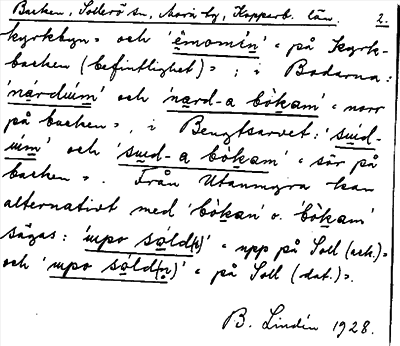 Backen, Sollerö sn, Mora hg, Kopparb. län. 2.
kyrkbyn» och 'ēmomín' « på Kyrk-
backen (befintlighet)»; i Bodarna:
'nårduím' och 'nård-a bökam' « norr
på backen», i Bengtsarvet: 'suíd-
uím' och 'suíd-a bökam' « sör på
backen». Från Utanmyra kan
alternativt med 'bökan' o. 'bökam'
sägas: 'upo såld(n)' « upp på Soll (ack.)»
och 'upo såld(n)' « på Soll (dat.)».
B. Lindén 1928.